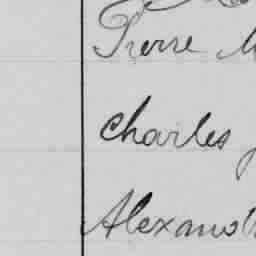 Pierre
Charles
Alexand